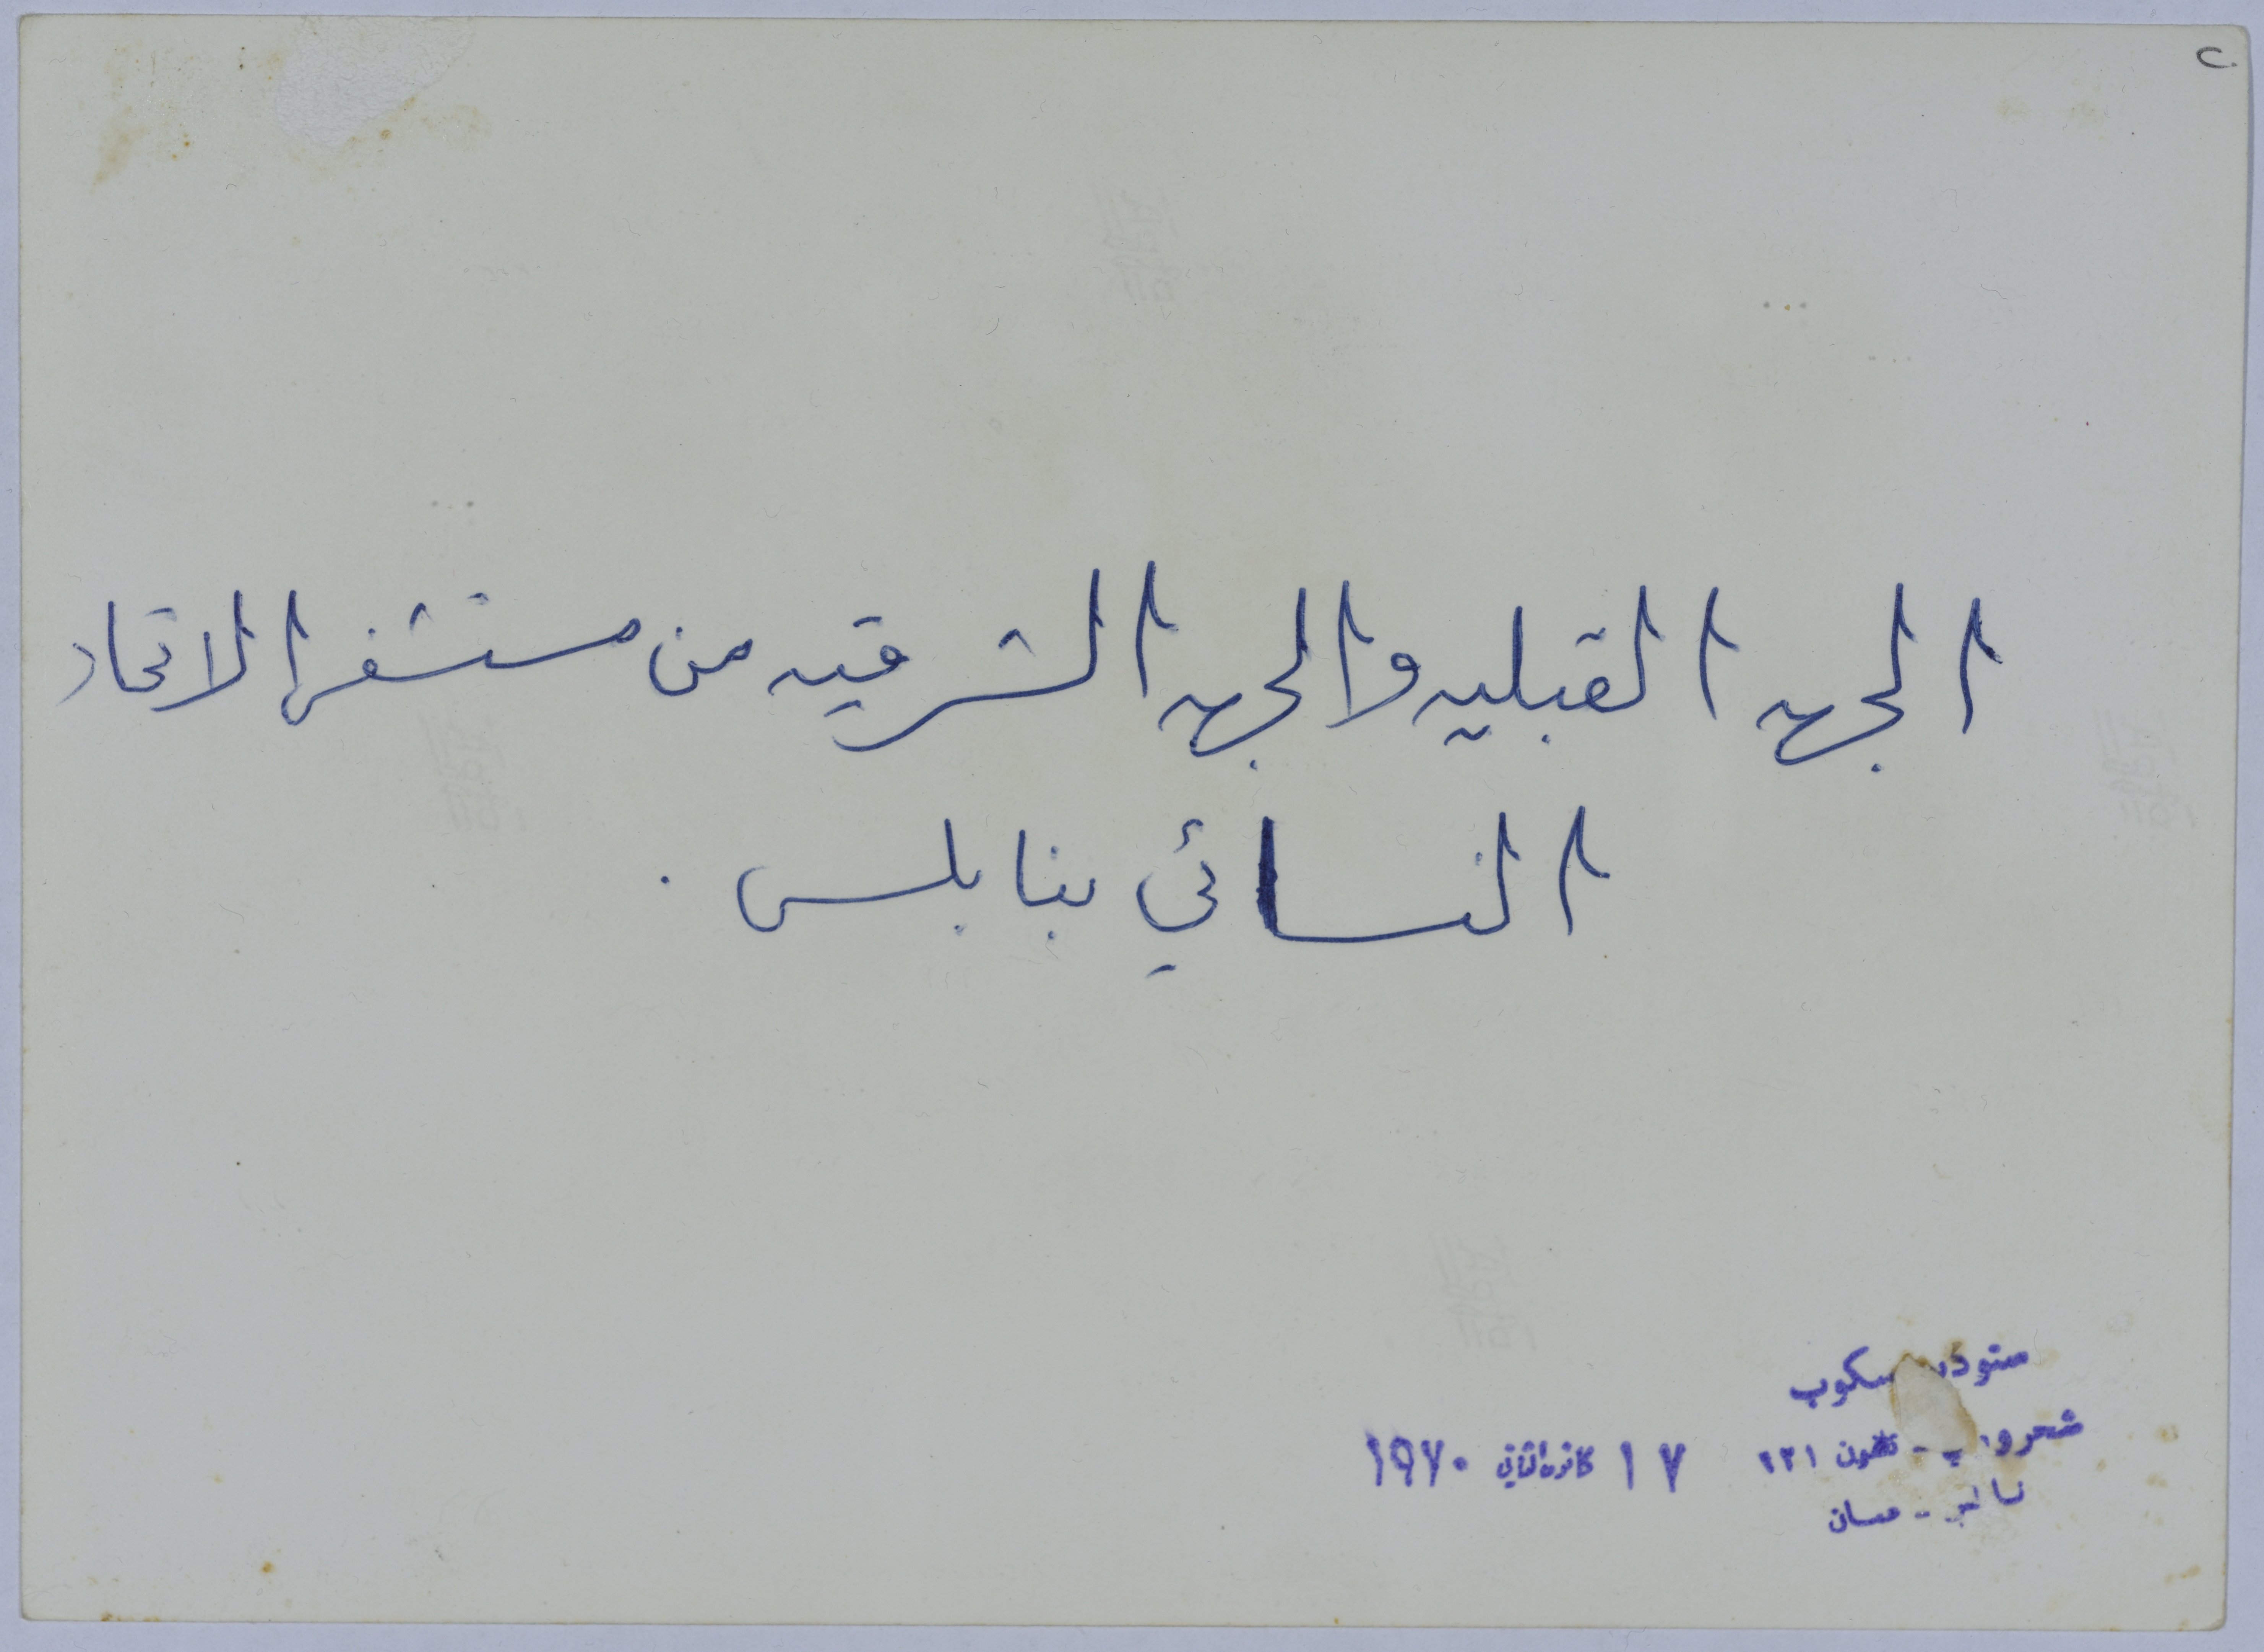 الجهه القبليه والجهه الشرقيه من مستشفى الاتحاد
النسائي بنابلس .
ستوديو سكوب
تلفون ٢٢١
١٧ كانون الثاني ١٩٧٠